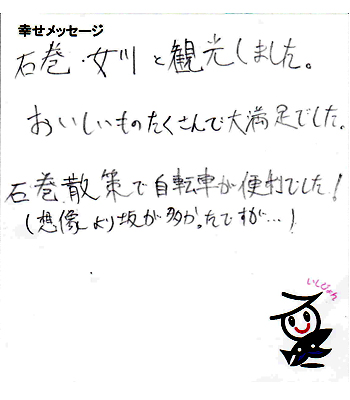 幸せメッセージ
石巻・女川と観光しました。
おいしいものたくさんで大満足でした。
石巻散策で自転車が便利でした!
(想像より坂が多かったですが…)
いしぴょん